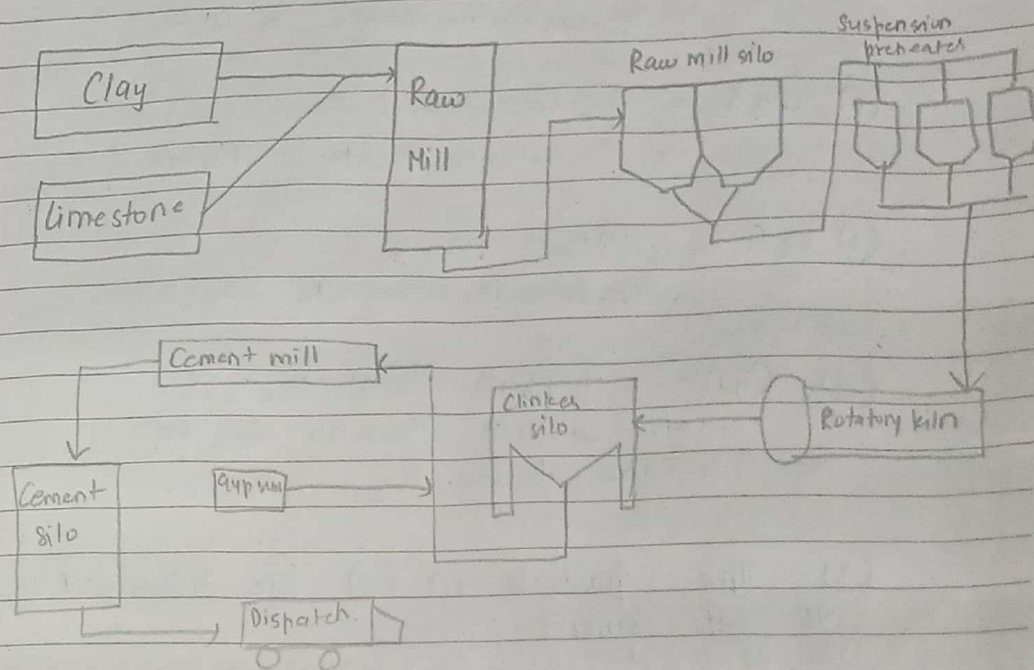 Clay
Limestone
Raw
Mill
Raw mill silo
Suspension
preheater
Rotatory kiln
Clinker
silo
Gypsum
Cement mill
Cement
silo
Dispatch.